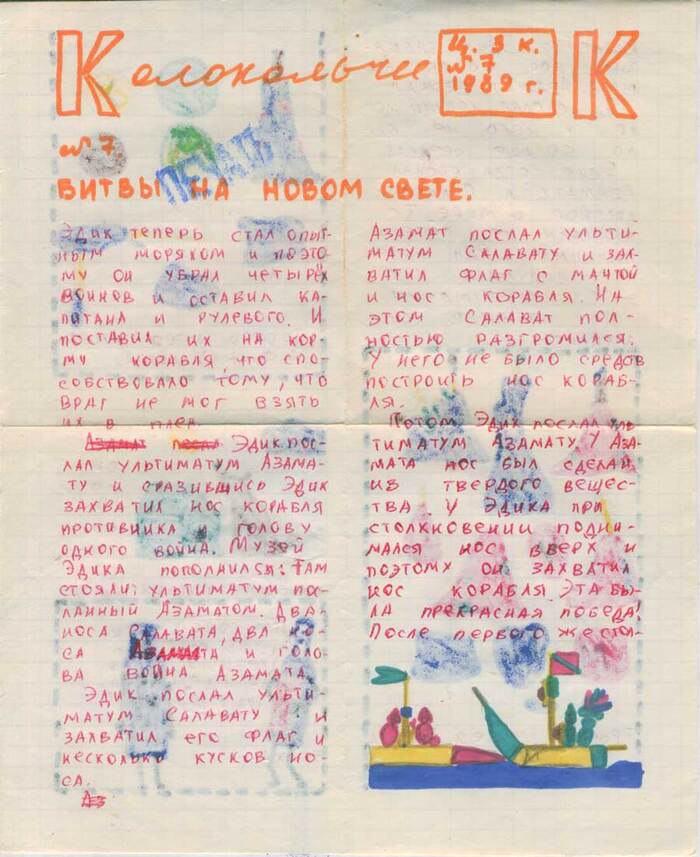 Колокольчик
Ц. 3 к.
№ 7
1989 г.
№ 7.
ПЕЧАТЬ
БИТВЫ НА НОВОМ СВЕТЕ.
Эдик теперь стал опыт-
ным моряком и поэто-
му он убрал четырёх
воинов и оставил ка-
питана и рулевого. И
поставил их на кор-
му корабля, что спо-
собствовало тому, что
враг не мог взять
их в плен.
Азамат послал Эдик пос-
лал ультиматум Азама-
ту и сразившись Эдик
захватил нос корабля
противника и голову
одного война. Музей
Эдика пополнился: Там
стояли: ультиматум пос-
ланный Азаматом. Два-
носа Салавата, два но-
са Азамата и голо-
ва война Азамата.
Эдик послал ульти-
матум Салавату и
захватил его флаг и
несколько кусков но-
са.
Аз
Азамат послал ульти-
матум Салавату и зах-
ватил флаг с мачтой
и нос корабля. На
этом Салават пол-
ностью разгромился.
У него не было средств
построить нос кораб-
ля.
Потом Эдик послал уль
тиматум Азамату. У Аза-
мата нос был сделан
из твердого вещес-
тва у Эдика при
столкновении подни-
мался нос вверх и
поэтому он захватил
нос корабля. Эта бы-
ла прекрасная победа!
После первого жесток-